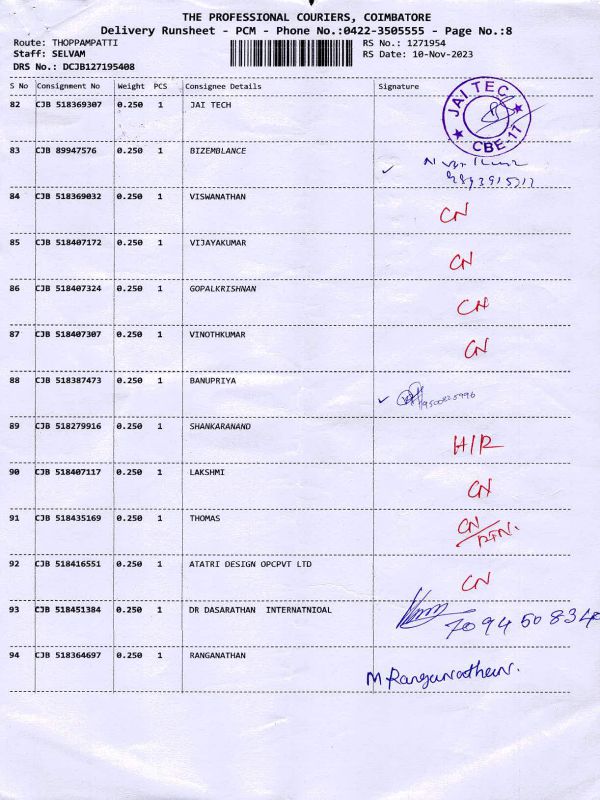 THE PROFESSIONAL COURIERS, COIMBATORE
Delivery Runsheet - PCM - Phone No.:0422-3505555 - Page No.:8
Route: THOPPAMPATTI RS No.: 1271954
Staff: SELVAM RS Date: 10-Nov-2023
DRS No.: DCJB127195408
S No Consignment No Weight PCS Consignee Details Signature
82 CJB 518369307 0.250 1 JAI TECH JAI TEC CBE-17
83 CJB 89947576 0.250 1 BIZEMBLANCE
84 CJB 518369032 0.250 1 VISWANATHAN CN
85 CJB 518407172 0.250 1 VIJAYAKUMAR CN
86 CJB 518407324 0.250 1 GOPALKRISHNAN CN
87 CJB 518407307 0.250 1 VINOTHKUMAR CN
88 CJB 518387473 0.250 1 BANUPRIYA
89 CJB 518279916 0.250 1 SHANKARANAND H/R
90 CJB 518407117 0.250 1 LAKSHMI CN
91 CJB 518435169 0.250 1 THOMAS CN
92 CJB 518416551 0.250 1 ATATRI DESIGN OPCPVT LTD CN
93 CJB 518451384 0.250 1 DR DASARATHAN INTERNATNIOAL 709450834
94 CJB 518364697 0.250 1 RANGANATHAN M Ranganathan.